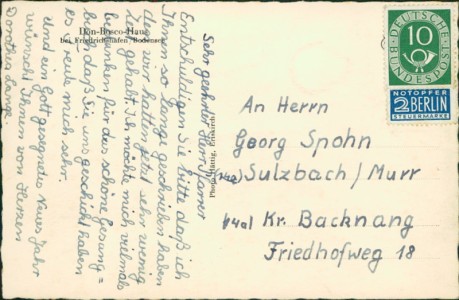 Don-Bosco-Haus
bei Friedrichshafen/Bodensee
Sehr geehrter Herr Pfarrer
Entschuldigen Sie bitte daß ich
Ihnen so lange geschrieben haben
der wir hatten jetzt sehr wenig
Zeit gehabt. Ich möchte mich vielmals
bedanken für das schöne Gesang=
buch daß Sie uns geschickt haben
es freue mich sehr.
Und ein Gott gesegnetes Neues Jahr
wünscht Ihnen von Herzen
Dorothea
DEUTSCHE
10
BUNDESPOST
NOTOPFER
2 BERLIN
STEUERMARKE
An Herrn
Georg Spohn
(14a) Sulzbach/Murr
(14a) Kr. Backnang
Friedhofweg 18